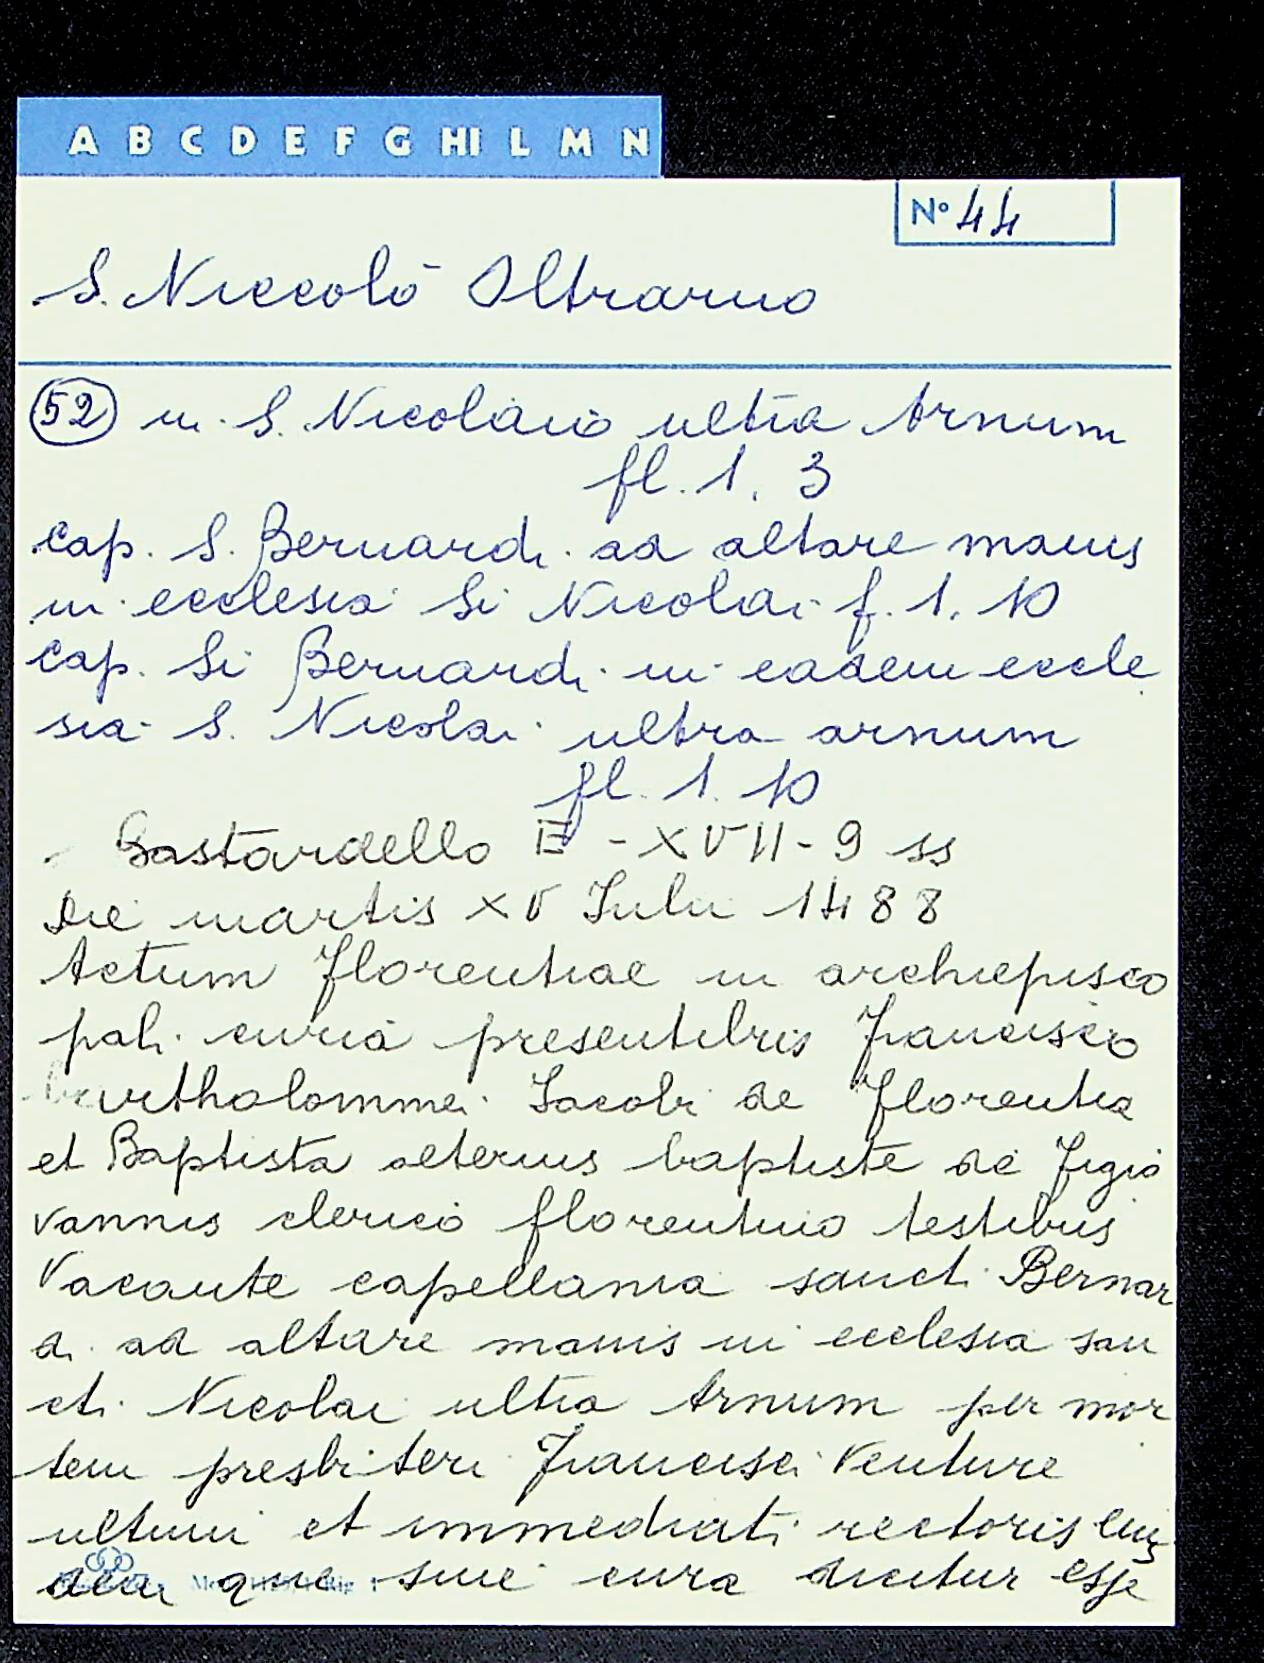 A B C D E F G HI L M N
N° 44
S. Niccolò Oltrarno
(52) in S. Nicolaio ultra Arnum
fl. 1. 3
cap. S. Bernardi ad altare maius
in ecclesia Si Nicolai f. 1. 10
cap. Si Bernardi in eadem eccle
sia S. Nicolai ultra arnum
fl. 1. 10
Bastardello E - XVII - 9 ss
Die martis XV Iulii 1488
Actum Florentiae in archiepisco
pali curia presentibus Francisco
bartholommei Iacobi de Florentia
et Baptista alterius baptiste de Figio
vannis clerico florentino testibus
Vacante capellania sancti Bernar
di ad altare maius in ecclesia san
cti Nicolai ultra Arnum per mor
tem presbiteri Francisci Venture
ultimi et immediati rectoris eius
dem que sine cura dicitur esse